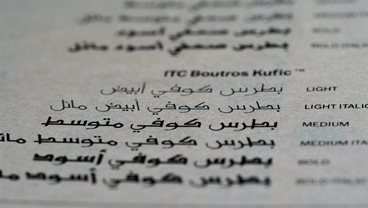 بطرس صحفي أسود BOLD
بطرس صحفي أسود مائل
ITC Boutros Kufic™
بطرس كوفي أبيض LIGHT
بطرس كوفي أبيض مائل LIGHT ITALIC
بطرس كوفي متوسط MEDIUM
بطرس كوفي متوسط مائل MEDIUM ITALIC
بطرس كوفي أسود BOLD
بطرس كوفي أسود مائل BOLD ITALIC